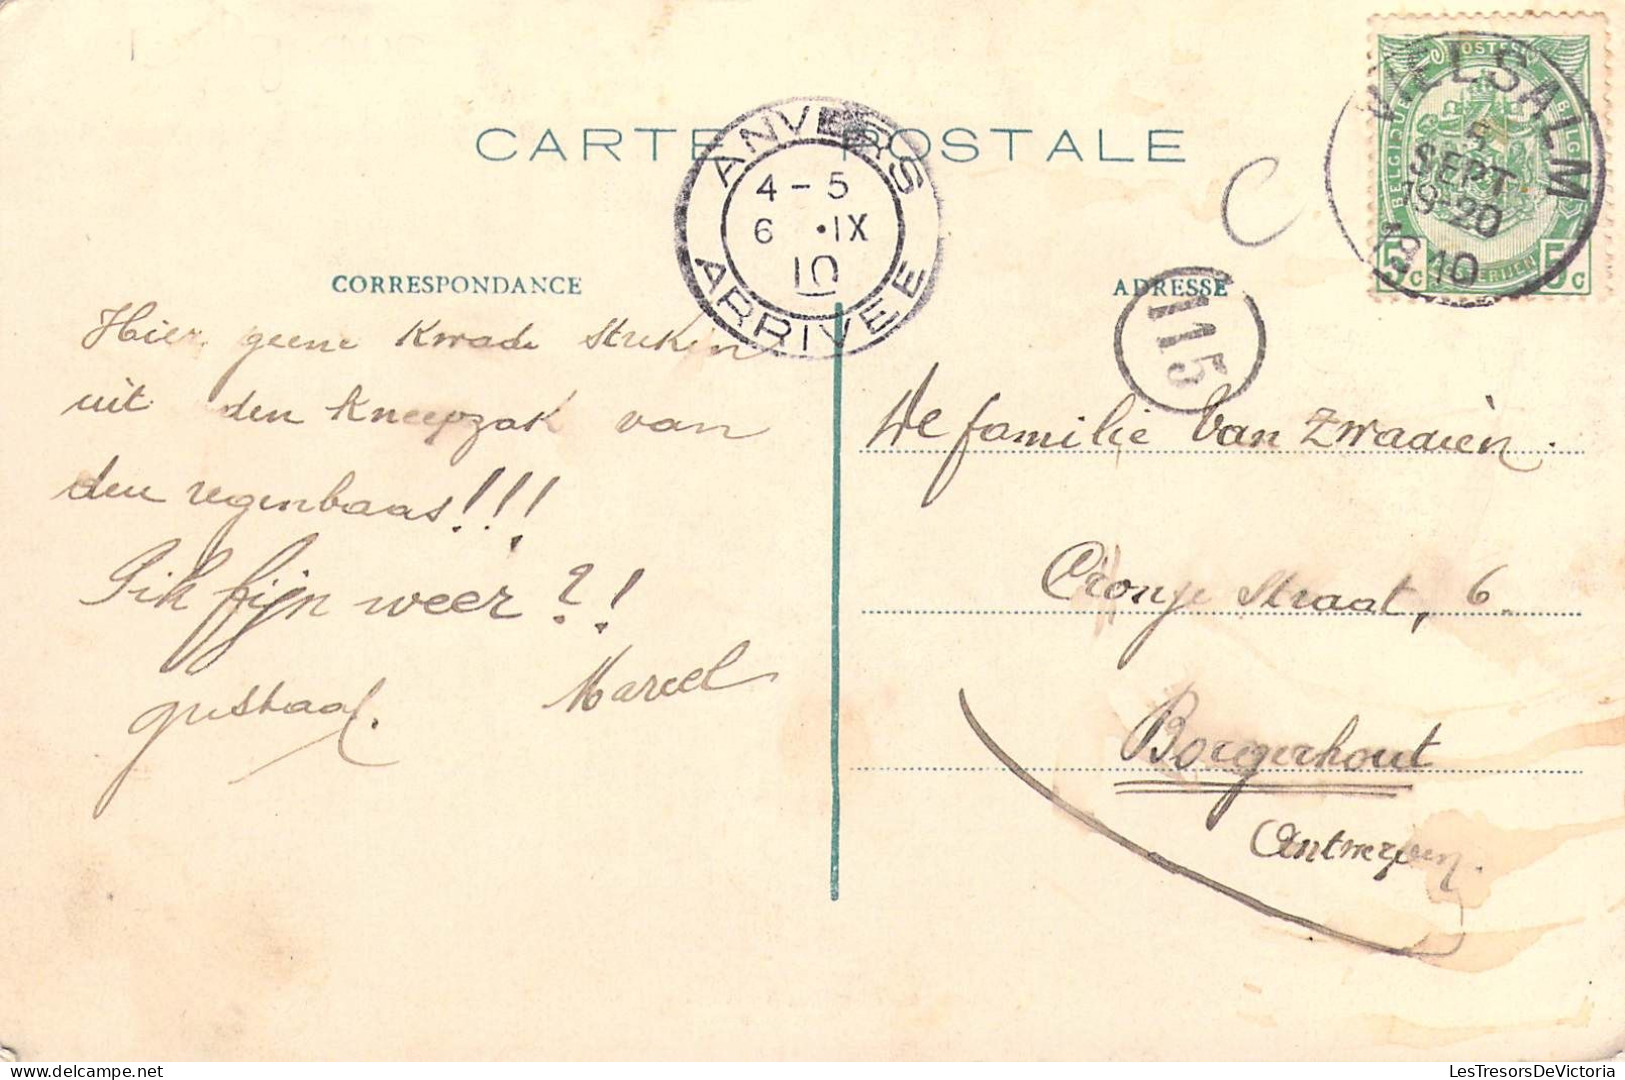 CARTE POSTALE
ANVERS
4-5
6 .IX
10
ARRIVEE
VIELSALM
5
SEPT.
19-20
1910
POSTES
BELGIQUE
5c 5c
CORRESPONDANCE
ADRESSE
C
115
Hier geene kwade streken
uit den kneepzak van
den regenbaas!!!
fijn weer?!
Marcel
gustaaf.
De familie Van Zwaaien.
Cronje straat, 6
Borgerhout
Antwerpen.
delcampe.net
LesTresorsDeVictoria